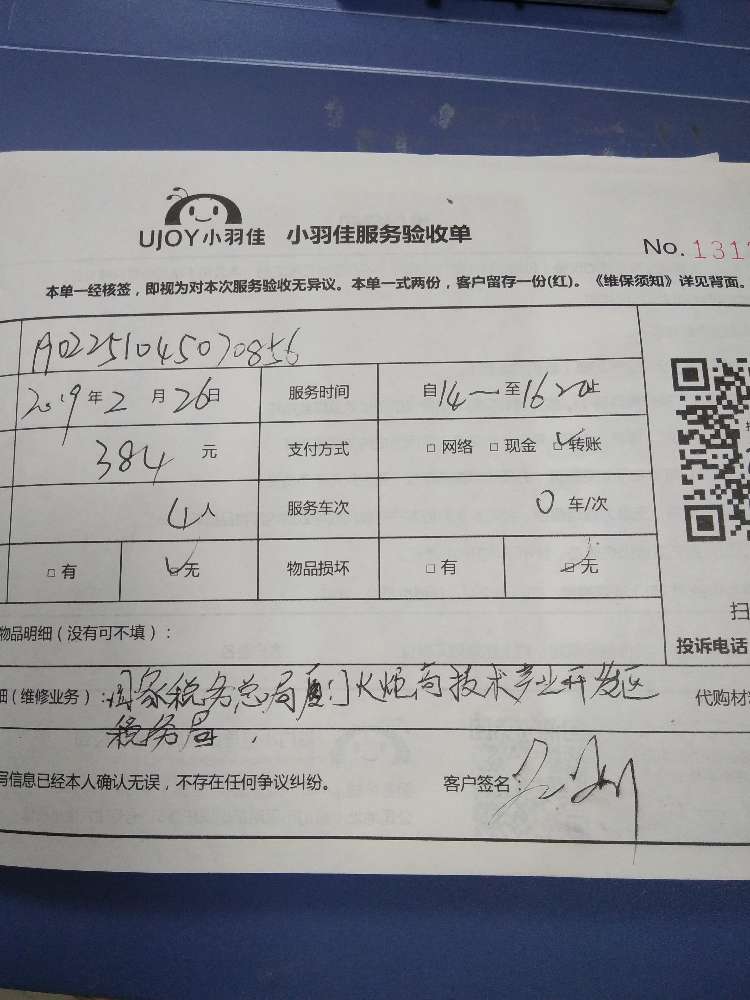 UJOY小羽佳 小羽佳服务验收单
No. 131
本单一经核签，即视为对本次服务验收无异议。本单一式两份，客户留存一份(红)。《维保须知》详见背面。
A02251045070856
2019年2月26日 服务时间 自14—至1620止
384元 支付方式 □网络 □现金 ☑转账
4人 服务车次 0车/次
□有 ☑无 物品损坏 □有 ☑无
扫
物品明细（没有可不填）：
投诉电话
细（维修业务）：国家税务总局厦门火炬高技术产业开发区 代购材
税务局.
写信息已经本人确认无误，不存在任何争议纠纷。 客户签名：